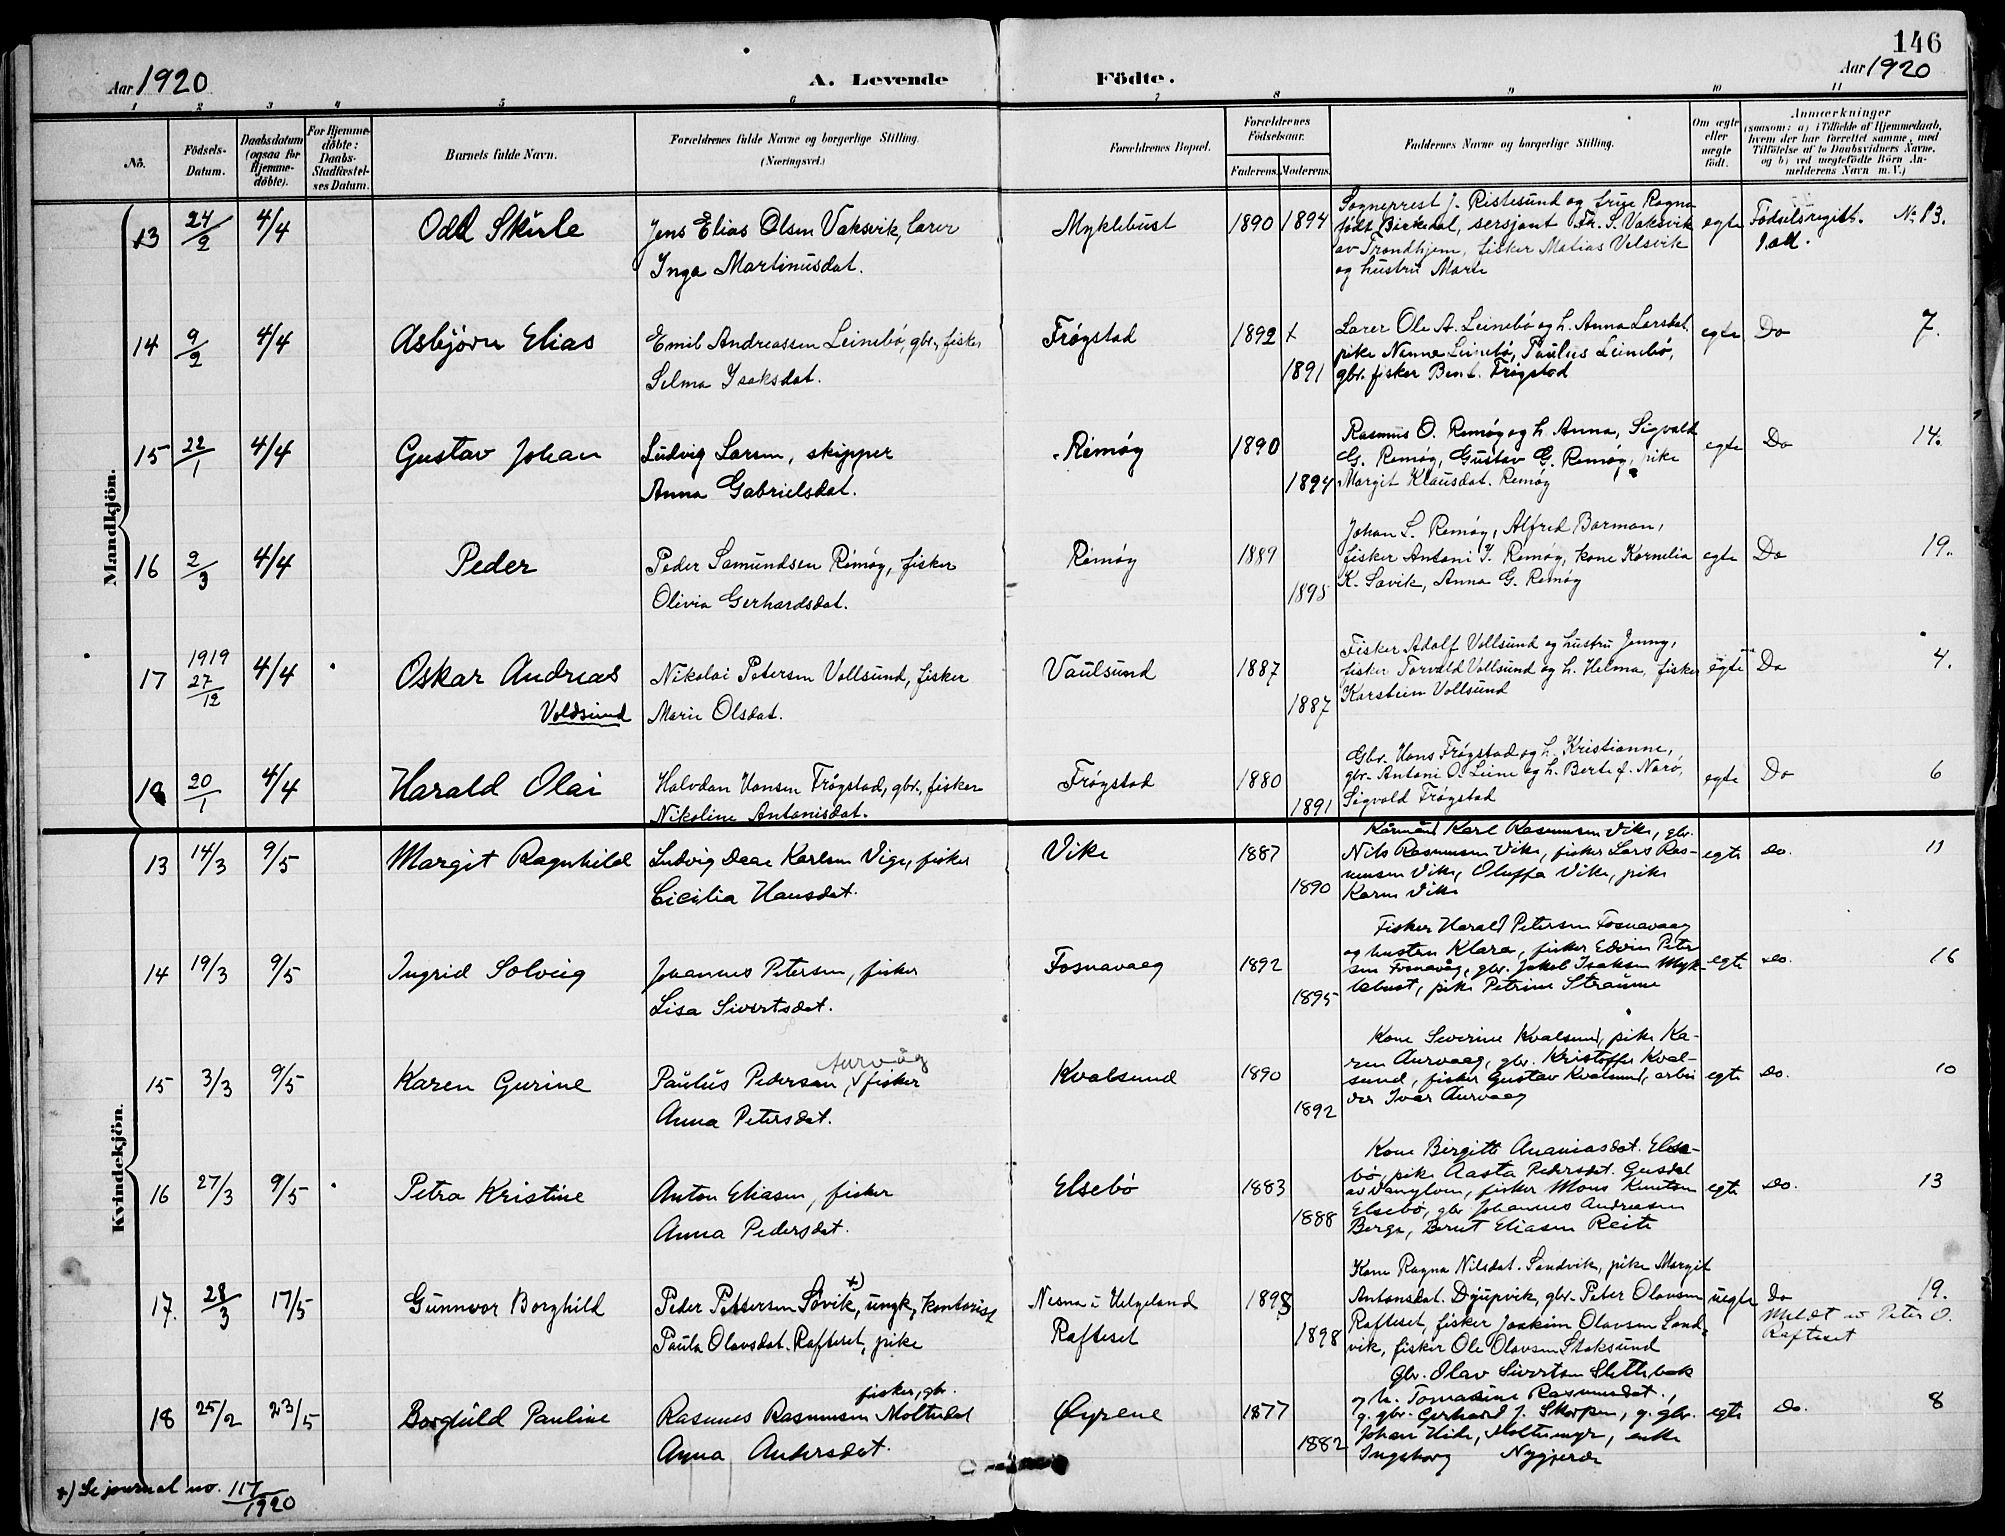 146
Aar 1920
A. Levende Födte.
Aar 1920
1 2 3 4 5 6 7 8 9 10 11
No.
Födsels-Datum.
Daabsdatum (ogsaa for Hjemme-døbte).
For Hjemme-døbte: Daabs-Stadfæstel-ses Datum.
Barnets fulde Navn.
Forældrenes fulde Navne og borgerlige Stilling.
(Næringsvei.)
Forældrenes Bopæl.
Forældrenes Födselsaar.
Faderens. Moderens.
Faddernes Navne og borgerlige Stilling.
Om ægte eller uægte født.
Anmærkninger
(saasom: a) i Tilfælde af Hjemmedaab, hvem der har forrettet samme, med Tilføielse af to Daabsvidners Navne, og b) ved uegtefødte Börn An-melderens Navn m. V.)
Mandkjön.
13 24/2 4/4 Odd Skule Jens Elias Olsen Vaksvik, lærer Myklebust 1890 1894 egte Fødselsregist. No 13.
Inga Martinusdat. 1 ad.
Sogneprest J. Ristesund og frue Ragna
født Birkedal, sersjant Fr. S. Vaksvik
av Trondhjem, fisker Matias Velsvik
og hustru Marte
14 9/2 4/4 Asbjørn Elias Emil Andreassen Leinebø, gbr., fisker Frøystad 1892 x egte Do 7.
Selma Isaksdat. 1891
Lærer Ole A. Leinebø og h. Anna Larsdat.
pike Nanna Leinebø, Paulus Leinebø,
gbr. fisker Bent. Frøystad
15 22/1 4/4 Gustav Johan Ludvig Larsen, skipper Remøy 1890 egte Do 14.
Anna Gabrielsdat. 1894
Rasmus O. Remøy og h. Anna, Sigvald
G. Remøy, Gustav G. Remøy, pike
Margit Klausdat. Remøy
16 2/3 4/4 Peder Peder Samundsen Remøy, fisker Remøy 1889 egte Do 19.
Olivia Gerhardsdat. 1895
Johan L. Remøy, Alfred Barman,
fisker Antoni I. Remøy, kone Kornelia
K. Savik, Anna G. Remøy
17 1919 27/12 4/4 Oskar Andreas Nikolai Petersen Vollsund, fisker Vaulsund 1887 egte Do 4.
Voldsund Marie Olsdat. 1887
Fisker Adolf Vollsund og hustru Jenny,
fisker Torvald Vollsund og h. Helma, fisker
Karstein Vollsund
18 20/1 4/4 Harald Olai Halvdan Hansen Frøystad, gbr., fisker Frøystad 1880 egte Do 6
Nikoline Antonisdat. 1891
Gbr. Hans Frøystad og h. Kristianne,
gbr. Antoni O. Leine og h. Berte f. Narø,
Sigvald Frøystad
Kvindekjön.
13 14/3 9/5 Margit Ragnhild Ludvig Daae Karlsen Vige, fisker Vike 1887 egte do. 11
Cicilia Hansdat. 1890
Kårmand Karl Rasmussen Vike, gbr.
Nils Rasmussen Vike, fisker Lars Ras-
mussen Vike, Oluffa Vike, pike
Karen Vike
14 19/3 9/5 Ingrid Solveig Joannes Petersen, fisker Fosnavaag 1892 egte do. 16
Lisa Sivertsdat. 1895
Fisker Harald Petersen Fosnavaag
og hustru Klara, fisker Edvin Peter
sen Fosnavåg, gbr. Jakob Isaksen Myk-
lebust, pike Petrine Straume
15 3/3 9/5 Karen Gurine Paulus Pedersen Aurvåg, fisker Kvalsund 1890 egte do. 10
Anna Petersdat. 1892
Kone Severine Kvalsund, pike Ka-
ren Aurvaag, gbr. Kristoffer Kval-
sund, fisker Gustav Kvalsund, arbei
der Ivar Aurvaag
16 27/3 9/5 Petra Kristine Anton Eliasen, fisker Elsebø 1883 egte do. 13
Anna Pedersdat. 1888
Kone Birgitte Ananiasdat. Else-
bø, pike Aasta Pedersdat. Gusdal
av Vanylven, fisker Mons Knutsen
Elsebø, gbr Johannes Andreasen
Berge, Bernt Eliasen Reite
17. 28/3 17/5 Gunnvor Borghild Peder Pettersen Søvik, +) ungk, kontorist Nesna i Helgeland 1898 uegte Do 19.
Paula Olavsdat. Rafteset, pike Rafteset 1898 Meldt av Peter O. Rafteset
Kone Ragna Nilsdat. Sandvik, pike Margit
Antonsdat. Djupvik, gbr. Peter Olavsen
Rafteset, fisker Joakim Olavsen Sand-
vik, fisker Ole Olavsen Stoksund
18 25/2 23/5 Borghild Pauline Rasmus Rasmussen Moltudal fisker, gbr. Øyrene 1877 egte do. 8
Anna Andersdat. 1882
Gbr. Olav Sivertsen Slettebak
og h. Tomasine Rasmusdat.,
g. gbr. Gerhard J. Skorpen, g. gbr.
Johan Hide, Moltumyr, enke
Ingeborg Nygjerde
+) Se journal no. 117/1920